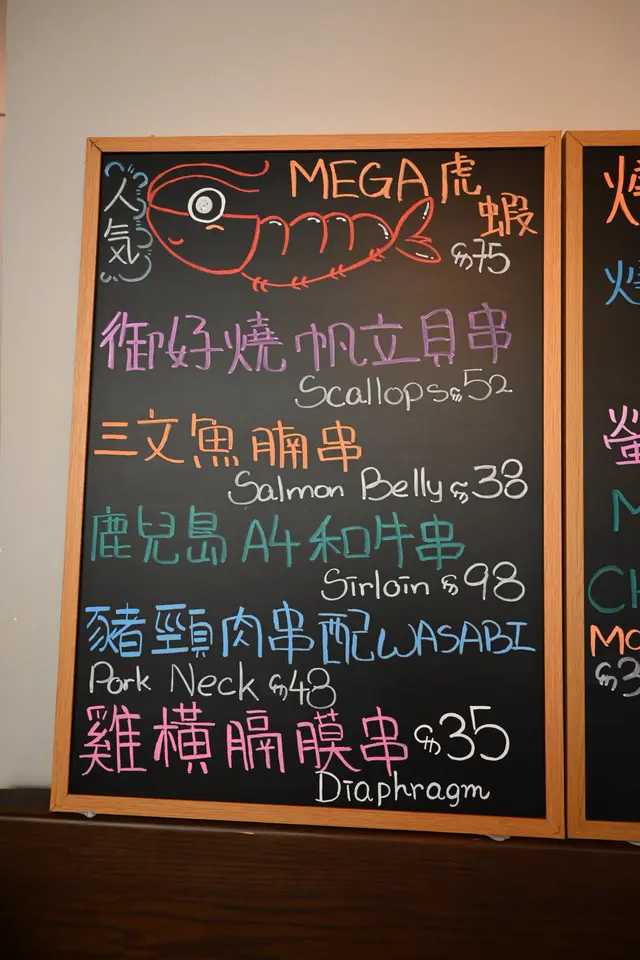 人気
MEGA虎
蝦
$75
御好燒帆立貝串
Scallops $52
三文魚腩串
Salmon Belly $38
鹿兒島A4和牛串
Sirloin $98
豬頸肉串配WASABI
Pork Neck $48
雞橫膈膜串 $35
Diaphragm